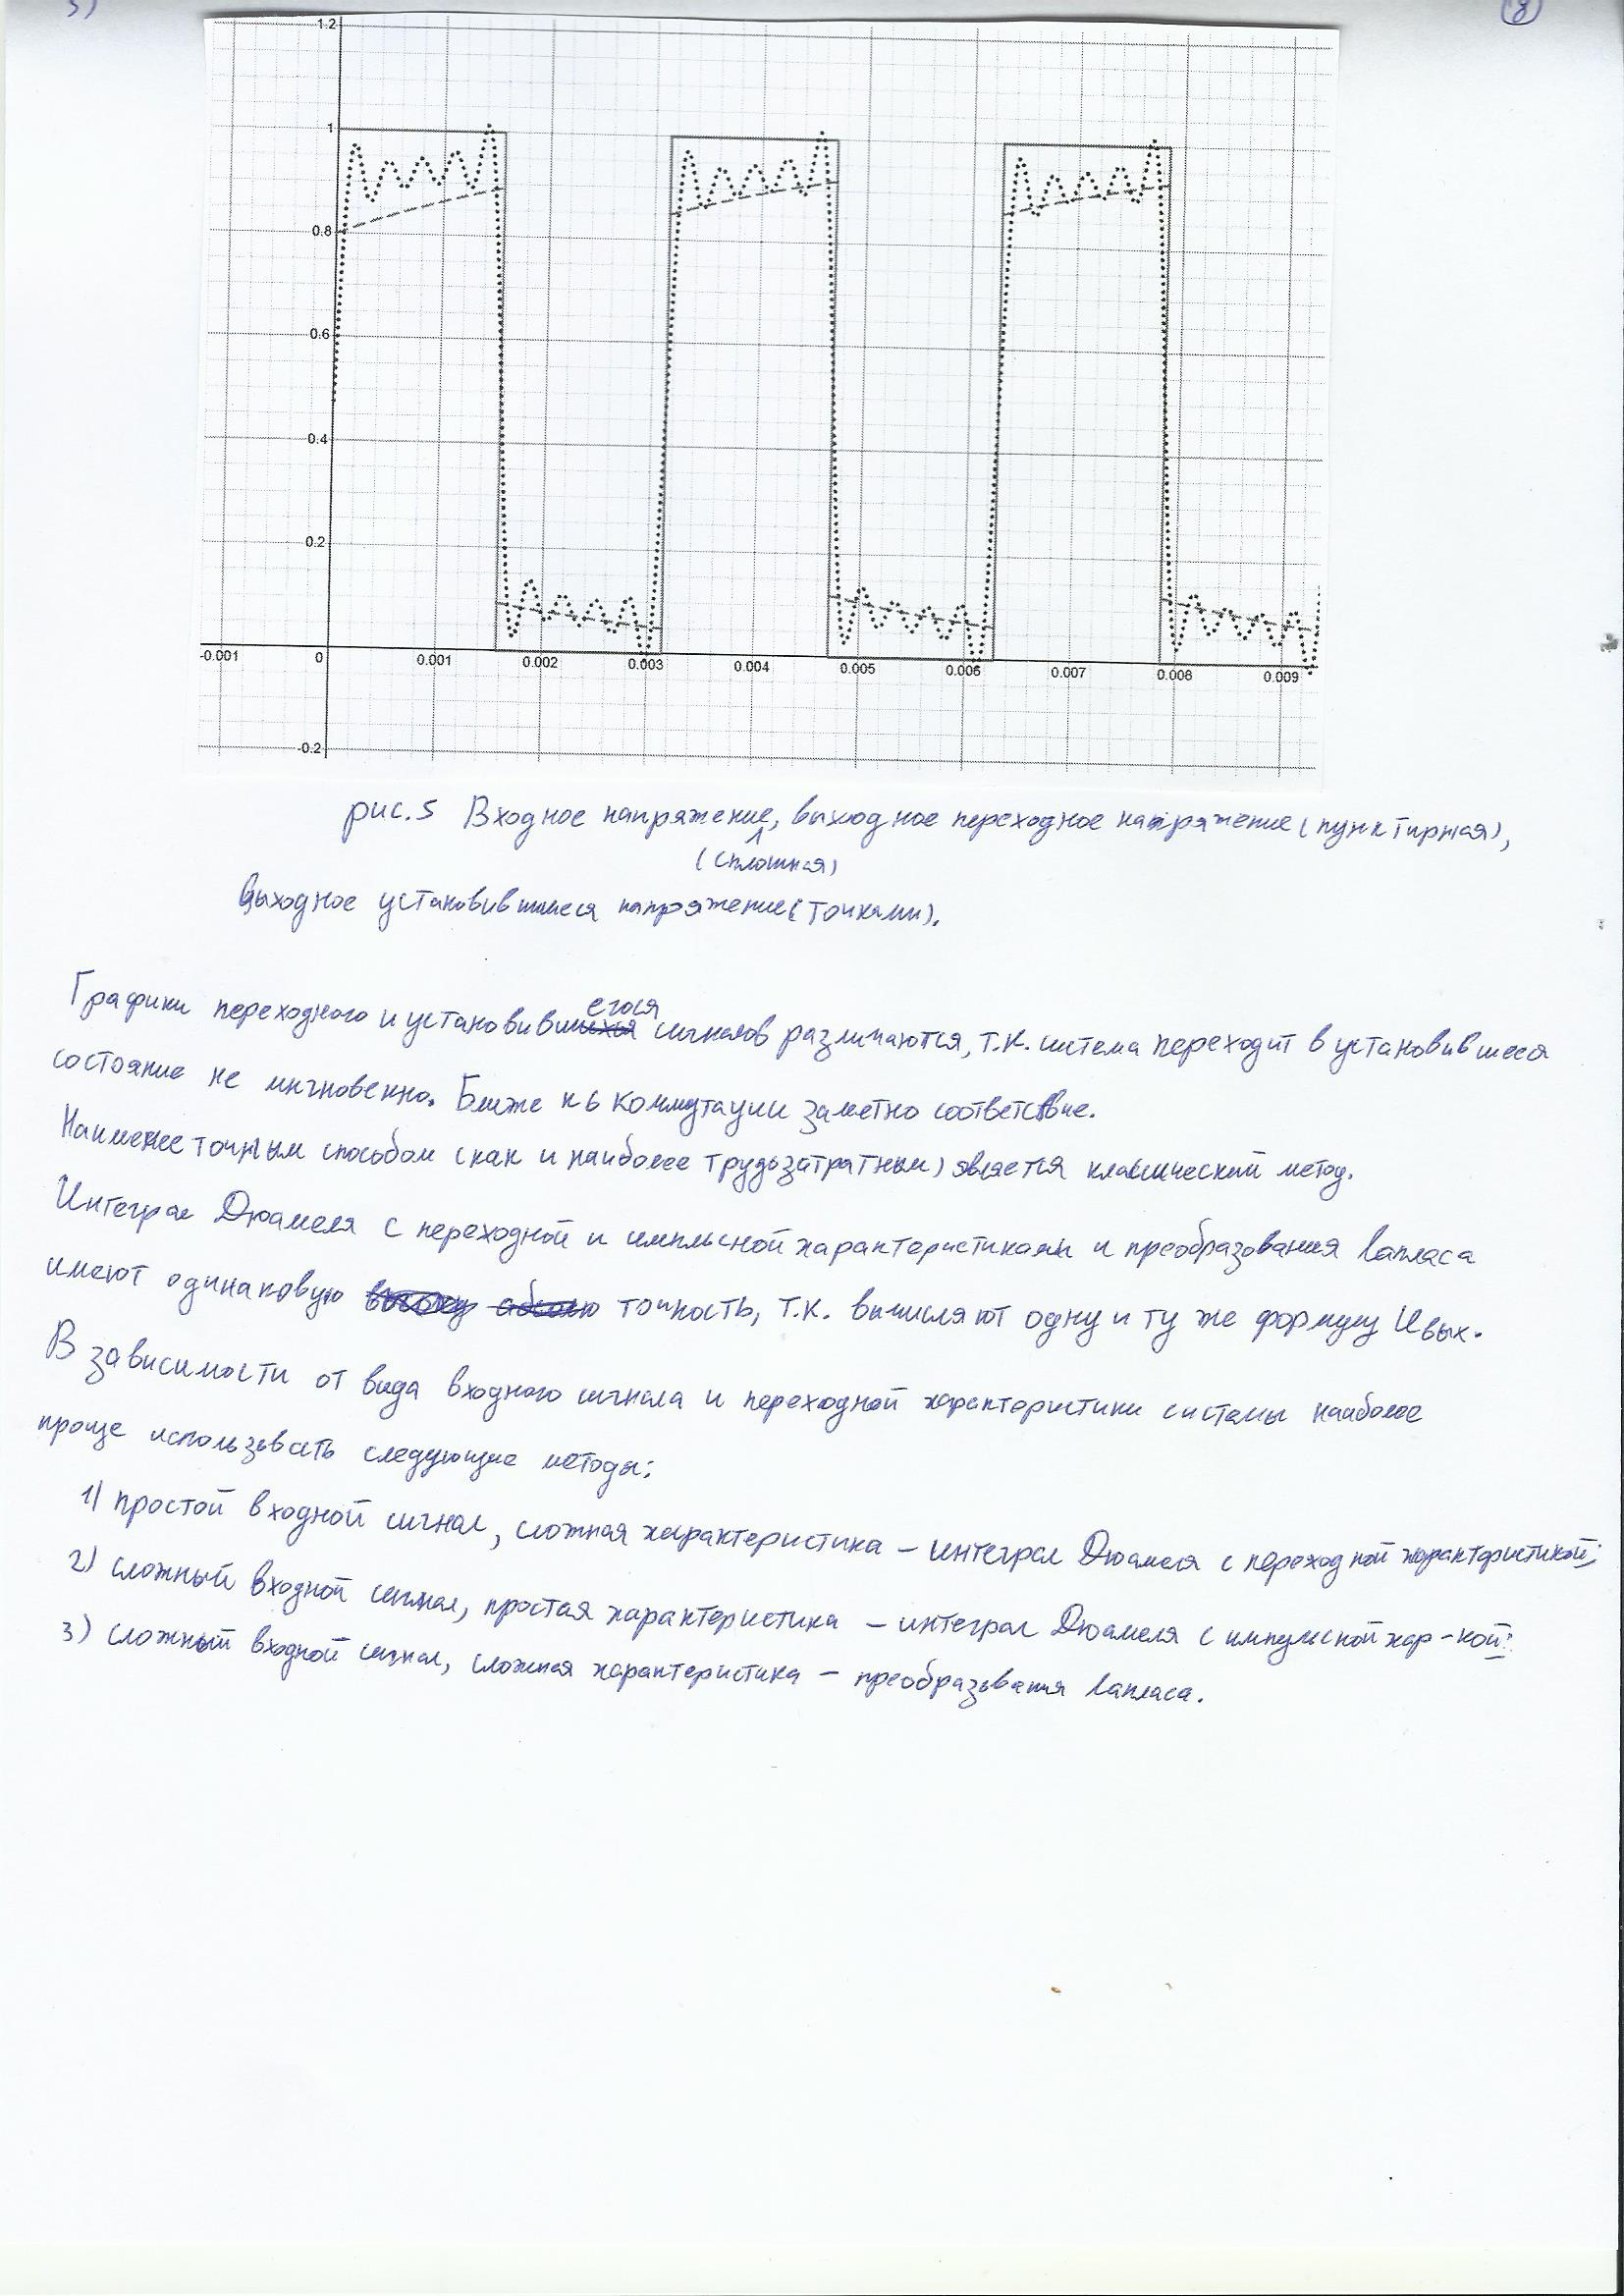 5)
8
1.2
1
0.8
0.6
0.4
0.2
-0.001 0 0.001 0.002 0.003 0.004 0.005 0.006 0.007 0.008 0.009
-0.2
рис.5 Входное напряжение, выходное переходное напряжение (пунктирная),
(сплошная)
выходное установившиеся напряжение (точками).
Графики переходного и установившегося сигналов различаются, т.к. система переходит в установившееся
состояние не мгновенно. Ближе к 6 коммутации заметно соответствие.
Наименее точным способом (как и наиболее трудозатратным) является классический метод.
Интеграл Дюамеля с переходной и импльсной характеристиками и преобразования Лапласа
имеют одинаковую точность, т.к. вычисляют одну и ту же формулу Uвых.
В зависимости от вида входного сигнала и переходной характеристики системы наиболее
проще использовать следующие методы:
1) простой входной сигнал, сложная характеристика – интеграл Дюамеля с переходной характеристикой;
2) сложный входной сигнал, простая характеристика – интеграл Дюамеля с импульсной хар-кой;
3) сложный входной сигнал, сложная характеристика – преобразования Лапласа.